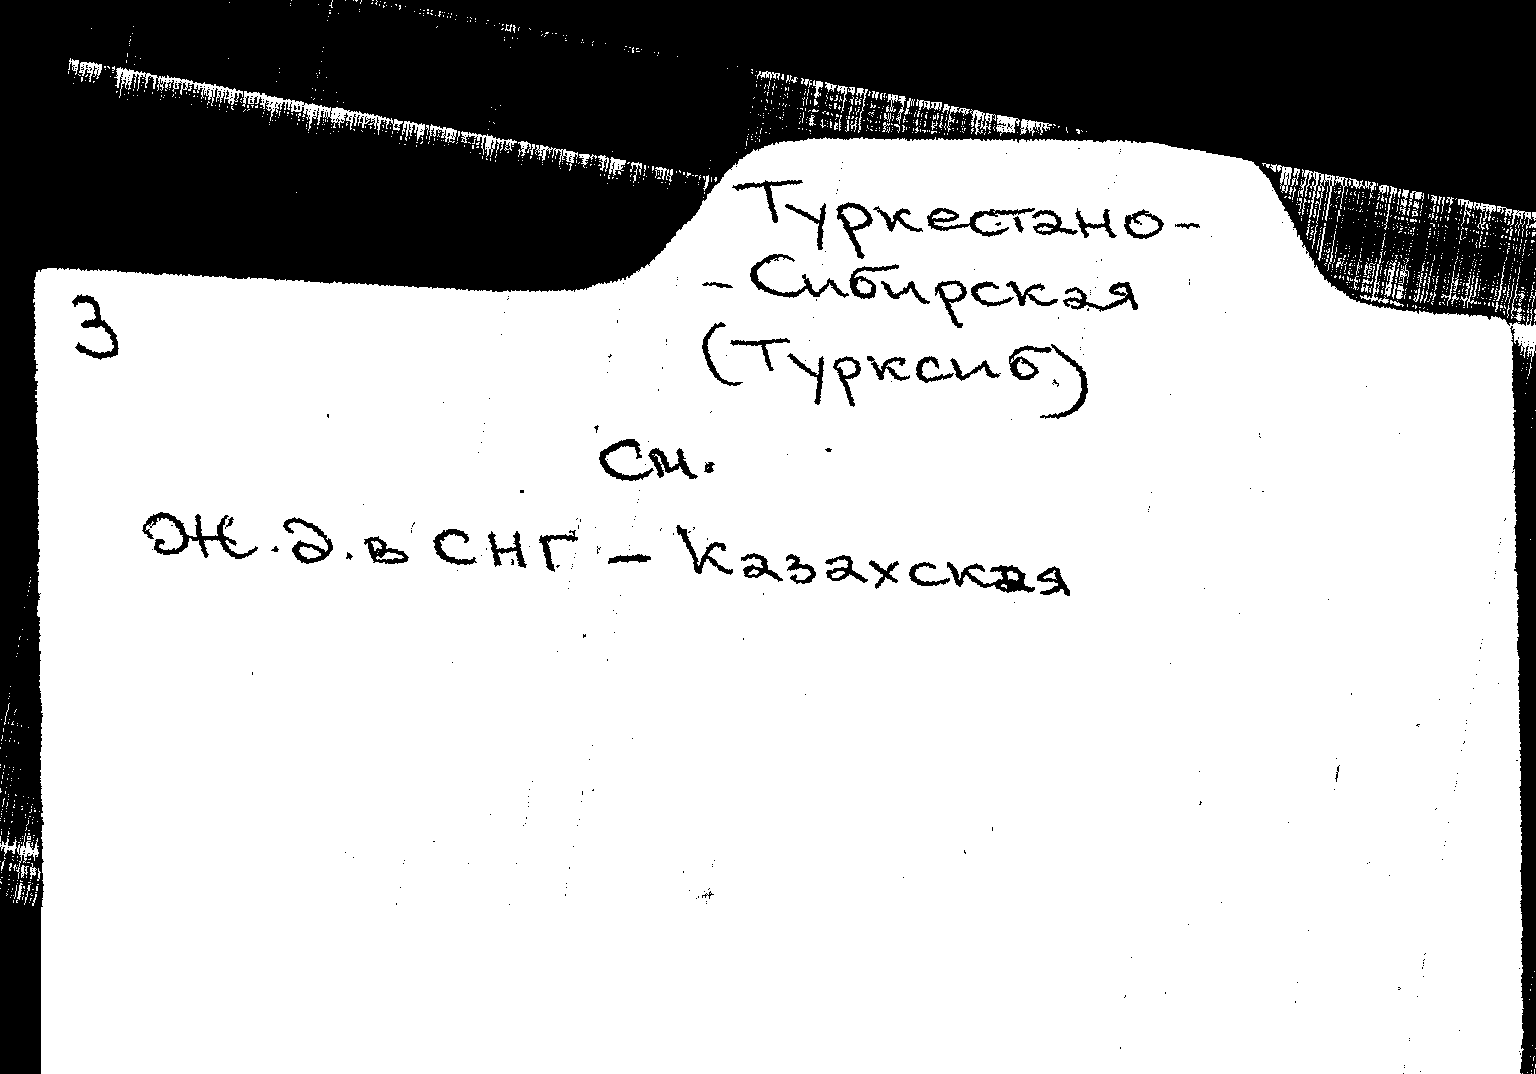 Туркестано-
-Сибирская
3
(Турксиб)
см.
Ж.д. в СНГ - Казахская